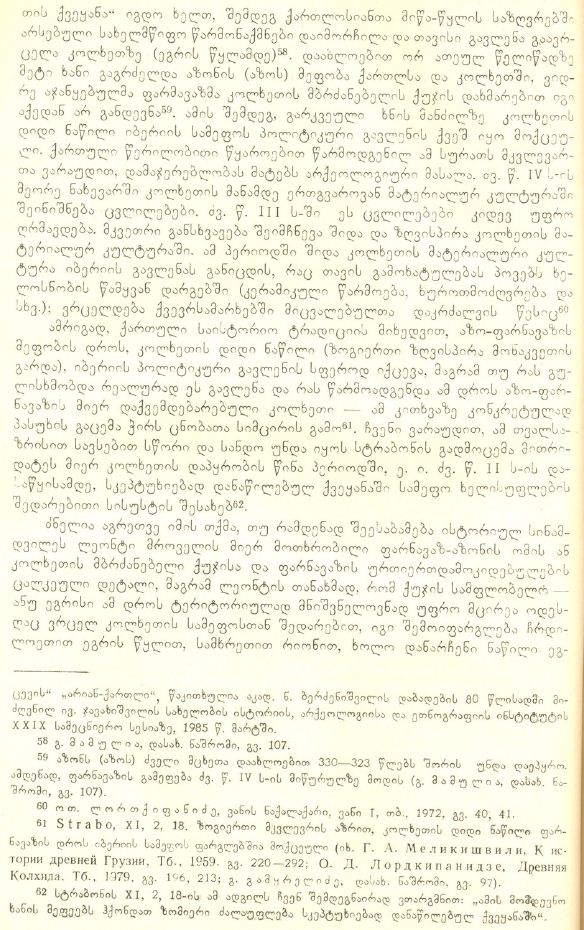 თის ქვეყანა“ იგდო ხელთ, შემდეგ ქართლოსიანთა მიწა-წყლის საზღვრებში
არსებული სახელმწიფო წარმონაქმნები დაიმორჩილა და თავისი გავლენა გაავრ-
ცელა კოლხეთზე (ეგრის წყლამდე)⁵⁸. დაახლოებით ორ ათეულ წელიწადზე
მეტი ხანი გაგრძელდა აზონის (აზოს) მეფობა ქართლსა და კოლხეთში, ვიდ-
რე აჯანყებულმა ფარნავაზმა კოლხეთის მბრძანებელის ქუჯის დახმარებით იგი
აქედან არ განდევნა⁵⁹. ამის შემდეგ, გარკვეული ხნის მანძილზე კოლხეთის
დიდი ნაწილი იბერიის სამეფოს პოლიტიკური გავლენის ქვეშ იყო მოქცეუ-
ლი. ქართული წერილობითი წყაროებით წარმოდგენილ ამ სურათს მკვლევარ-
თა ვარაუდით, დამაჯერებლობას მატებს არქეოლოგიური მასალა. ძვ. წ. IV ს-ის
მეორე ნახევარში კოლხეთის მანამდე ერთგვაროვან მატერიალურ კულტურაში
შეინიშნება ცვლილებები. ძვ. წ. III ს-ში ეს ცვლილებები კიდევ უფრო
ღრმავდება. მკვეთრი განსხვავება შეიმჩნევა შიდა და ზღვისპირა კოლხეთის მა-
ტერიალურ კულტურაში. ამ პერიოდში შიდა კოლხეთის მატერიალური კულ-
ტურა იბერიის გავლენას განიცდის, რაც თავის გამოხატულებას პოვებს ხე-
ლოსნობის წამყვან დარგებში (კერამიკული წარმოება, ხუროთმოძღვრება და
სხვ.); ვრცელდება ქვევრსამარხებში მიცვალებულთა დაკრძალვის წესიც⁶⁰
ამრიგად, ქართული საისტორიო ტრადიციის მიხედვით, აზო-ფარნავაზის
მეფობის დროს, კოლხეთის დიდი ნაწილი (ზოგიერთი ზღვისპირა მონაკვეთის
გარდა), იბერიის პოლიტიკური გავლენის სფეროდ იქცევა, მაგრამ თუ რას გუ-
ლისხმობდა რეალურად ეს გავლენა და რას წარმოადგენდა ამ დროს აზო-ფარ-
ნავაზის მიერ დაქვემდებარებული კოლხეთი — ამ კითხვაზე კონკრეტულად
პასუხის გაცემა ჭირს ცნობათა სიმცირის გამო⁶¹. ჩვენი ვარაუდით, ამ თვალსა-
ზრისით სავსებით სწორი და სანდო უნდა იყოს სტრაბონის გადმოცემა მითრი-
დატეს მიერ კოლხეთის დაპყრობის წინა პერიოდში, ე. ი. ძვ. წ. II ს-ის და-
საწყისამდე, სკეპტუხიებად დანაწილებულ ქვეყანაში სამეფო ხელისუფლების
შედარებითი სისუსტის შესახებ⁶².
ძნელია აგრეთვე იმის თქმა, თუ რამდენად შეესაბამება ისტორიულ სინამ-
დვილეს ლეონტი მროველის მიერ მოთხრობილი ფარნავაზ-აზონის ომის ან
კოლხეთის მბრძანებელი ქუჯისა და ფარნავაზის ურთიერთდამოკიდებულების
ცალკეული დეტალი, მაგრამ ლეონტის თანახმად, რომ ქუჯის სამფლობელო —
ანუ ეგრისი ამ დროს ტერიტორიულად მნიშვნელოვნად უფრო მცირეა ოდეს-
ღაც ვრცელ კოლხეთის სამეფოსთან შედარებით, იგი შემოიფარგლება ჩრდი-
ლოეთით ეგრის წყლით, სამხრეთით რიონით, ხოლო დანარჩენი ნაწილი ეგ-
ცევის“ „არიან-ქართლი“, წაკითხულია აკად. ნ. ბერძენიშვილის დაბადების 80 წლისადმი მი-
ძღვნილ ივ. ჯავახიშვილის სახელობის ისტორიის, არქეოლოგიისა და ეთნოგრაფიის ინსტიტუტის
XXIX სამეცნიერო სესიაზე, 1985 წ. მარტში.
58 გ. მამულია, დასახ. ნაშრომი, გვ. 107.
59 აზონს (აზოს) ძველი მცხეთა დაახლოებით 330—323 წლებს შორის უნდა დაეპყრო.
ამდენად, ფარნავაზის გამეფება ძვ. წ. IV ს-ის მიწურულზე მოდის (გ. მამულია, დასახ. ნა-
შრომი, გვ. 107).
60 ოთ. ლორთქიფანიძე, ვანის ნაქალაქარი, ვანი I, თბ., 1972, გვ. 40, 41.
61 Strabo, XI, 2, 18. ზოგიერთი მკვლევრის აზრით, კოლხეთის დიდი ნაწილი ფარ-
ნავაზის დროს იბერიის სამეფოს ფარგლებშია მოქცეული (იხ. Г. А. Меликишвили, К ис-
тории древней Грузии, Тб., 1959. გვ. 220—292; О. Д. Лордкипанидзе, Древняя
Колхида. Тб., 1979, გვ. 196, 213; გ. გამყრელიძე, დასახ. ნაშრომი, გვ. 97).
62 სტრაბონის XI, 2, 18-ის ამ ადგილს ჩვენ შემდეგნაირად ვთარგმნით: „ამის მომდევნო
ხანის მეფეებს ჰქონდათ ზომიერი ძალაუფლება სკეპტუხიებად დანაწილებულ ქვეყანაში“.